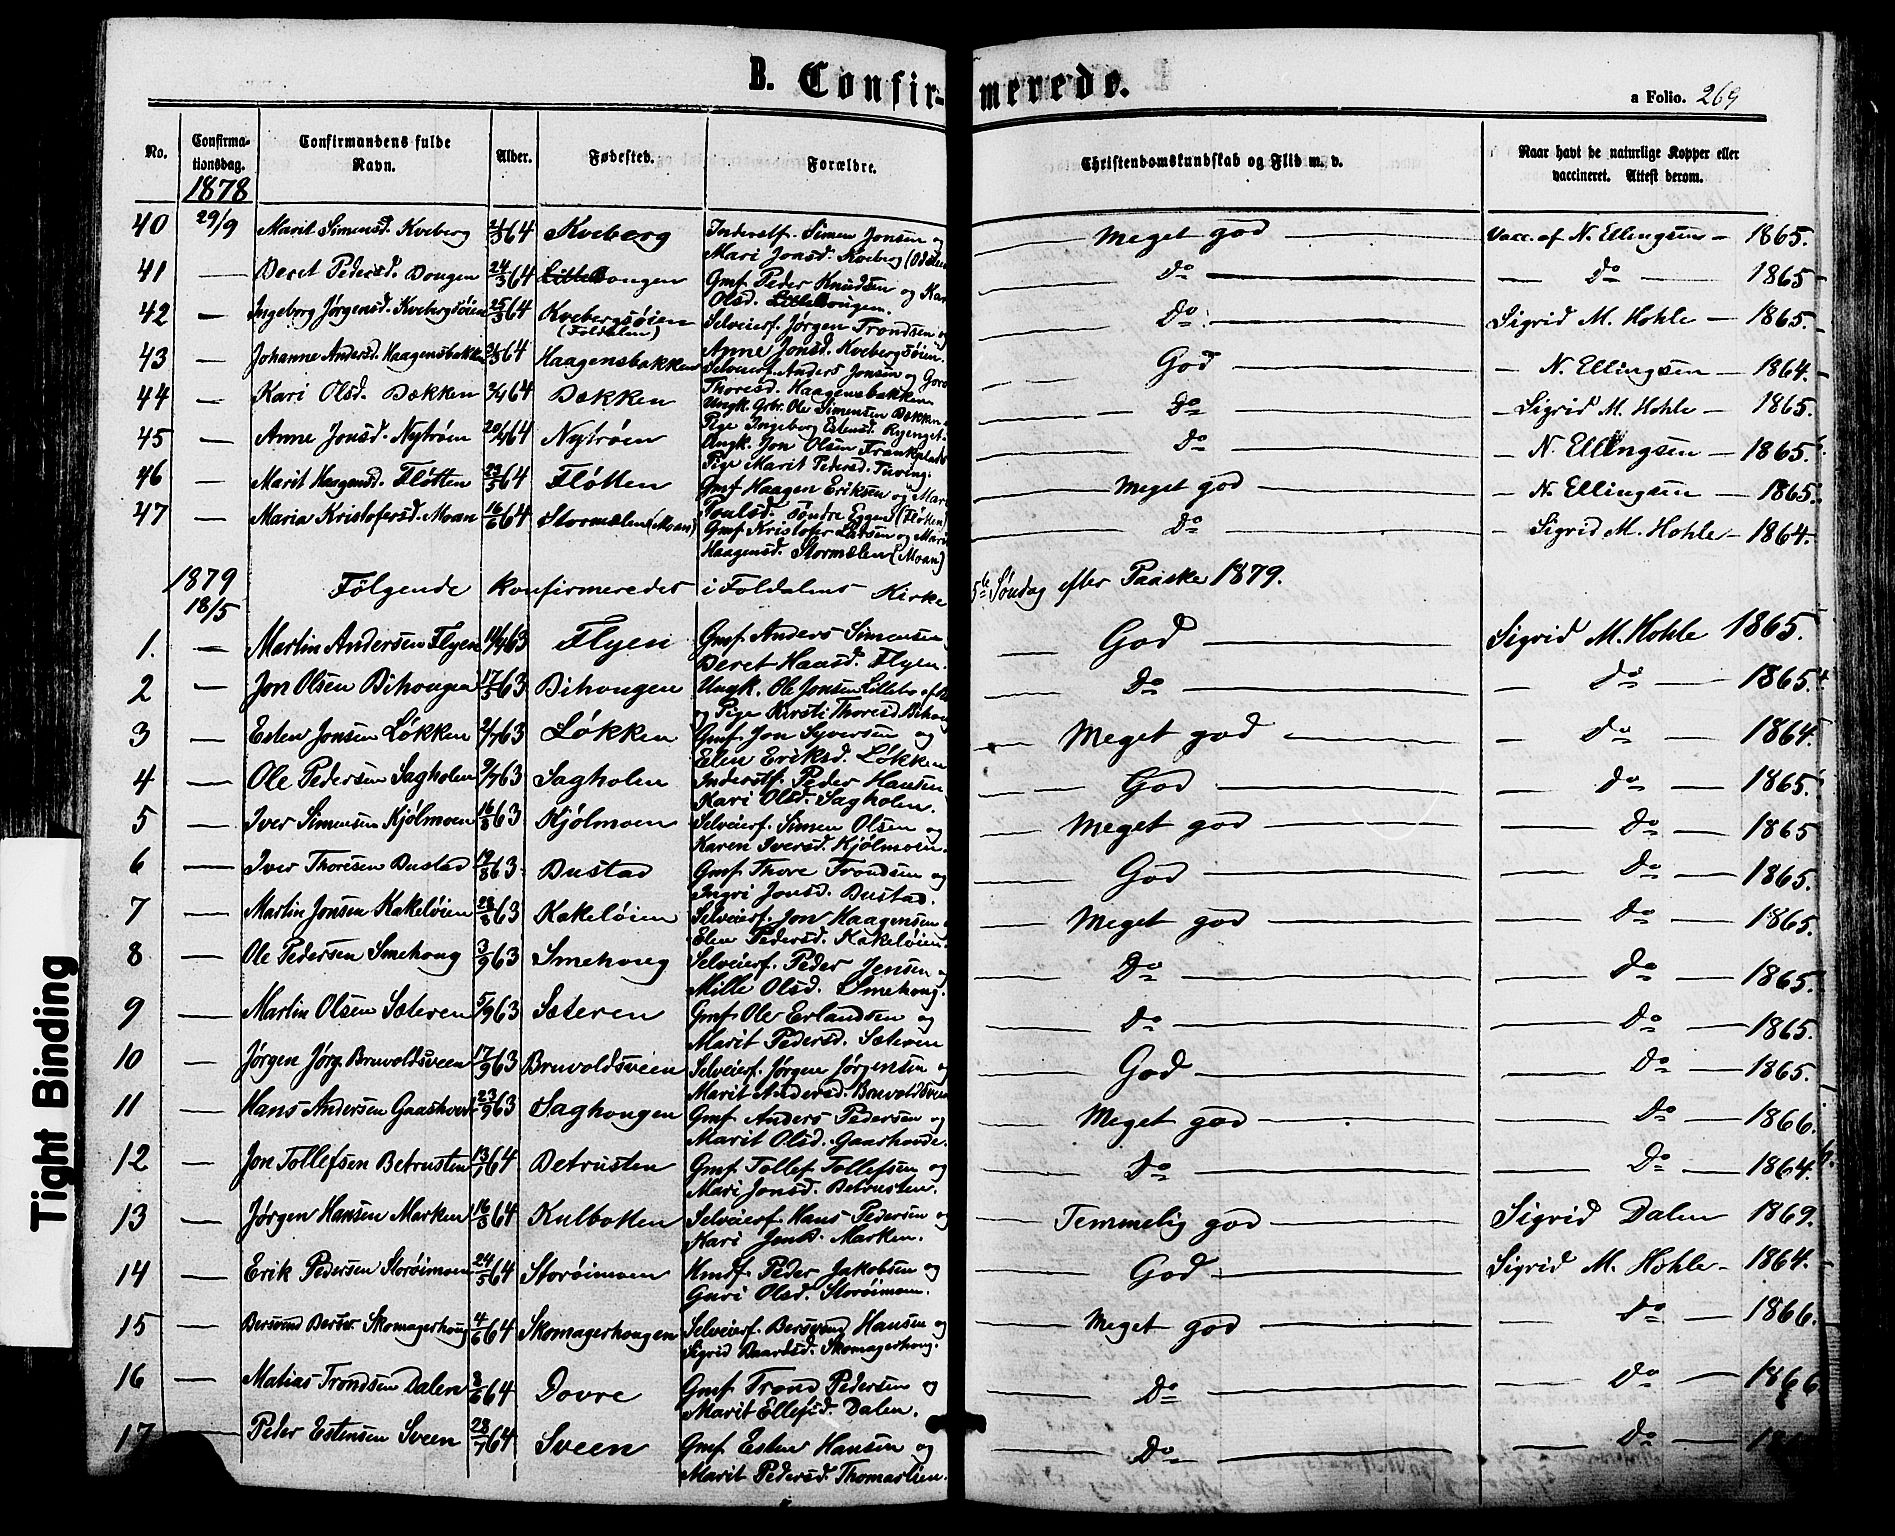 B. Confir- merede.
a Folio. 269
No. Confirmationsdag. Confirmandens fulde Navn. Alder. Fødested. Forældre. Christendomskundskab og Flid m. v. Naar havt de naturlige Kopper eller vaccineret. Attest derom.
1878
40 29/9 Marit Simensd. Kveberg 64 Kveberg Inderstf. Simen Jonsen og Meget god Vacc. af N. Ellingsen 1865.
Mari Jonsd. Kveberg
41 — Beret Pedersd. Dougen 24/3 64 Gmf Peder Knudsen og Kari Do Do 1865
Olsd.
42 — Ingeborg Jørgensd. Kvebergsøien 25/3 64 Kvebergsøien (Foldalen) Selveierf. Jørgen Trondsen og Do Sigrid M. Hohle 1865.
Anne Jonsd. Kvebergsøien.
43 — Johanne Andersd. Haagensbakken 64 Haagensbakken Selveierf. Anders Jonsen og God N. Ellingsen 1864.
Thoresd. Haagensbakken
44 — Kari Olsd. Bækken 64 Bækken Ungk. Grbr. Ole Simensen Bækken Do Sigrid M. Hohle 1865.
Pige Ingeborg Estensd.
45 — Anne Jonsd. Nytrøen 20/4 64 Nytrøen Ungk. Jon Olsen Do N. Ellingsen 1865.
Pige Marit Pedersd.
46 — Marit Haagensd. Fløtten 64 Fløtten Gmf Haagen Eriksen og Meget god N. Ellingsen 1865.
Poulsd. Søndre Eggen (Fløtten)
47 — Maria Kristofersd. Moan 16/6 64 Stormælen (Moan) Gmf Kristofer Larsen og Do Sigrid M. Hohle 1864.
Haagensd. Stormælen (Moan)
1879
18/5 Følgende konfirmeredes i Foldalens Kirke 5te Søndag efter Paaske 1879.
1. — Martin Andersen Flyen 63 Flyen Gmf Anders Simensen God Sigrid M. Hohle 1865.
Beret Haasd. Flyen.
2 — Jon Olsen Bihougen 17/5 63 Bihougen Ungk. Ole Jonsen Do Do 1865.
og Pige Kirsti Thoresd.
3 — Esten Jonsen Løkken 2/7 63 Løkken Gmf Jon Syversen og Meget god Do 1864.
Elen Eriksd. Løkken
4 — Ole Pedersen Sagholen 9/7 63 Sagholen Inderstf. Peder Hansen God Do 1865.
Kari Olsd. Sagholen.
5 — Iver Simensen Kjølmoen 16/8 63 Kjølmoen Selveierf. Simen Olsen og Meget god Do 1865
Karen Iversd. Kjølmoen.
6 — Iver Thoresen Bustad 19/8 63 Bustad Gmf Thore Trondsen og God Do 1865.
Ingri Jonsd. Bustad.
7 — Martin Jonsen Kakeløien 28/8 63 Kakeløien Selveierf. Jon Haagensen Meget god Do 1865.
Elen Pedersd. Kakeløien
8 — Ole Pedersen Smehoug 3/9 63 Smehoug Selveierf. Peder Jensen og Do Do 1865.
Mille Olsd. Smehoug.
9 — Martin Olsen Sæteren 5/9 63 Sæteren Gmf Ole Erlandsen og Do Do 1865.
Marit Pedersd. Sæteren
10 — Jørgen Jørg. Bruvoldsveen 17/9 63 Bruvoldsveien Selveierf. Jørgen Jørgensen og God Do 1865.
Marit Andersd. Bruvoldsveen
11 — Hans Andersen 23/9 63 Saghougen Gmf Anders Pedersen og Meget god Do 1866.
Marit Olsd.
12 — Jon Tollefsen Betrusten 13/1 64 Betrusten Gmf. Tollef Tollefsen og Do Do 1864.
Mari Jonsd. Betrusten.
13 — Jørgen Hansen Marken 16/3 64 Kulbotten Selveierf Hans Pedersen og Temmelig god Sigrid Dalen 1869.
Kari Jensd. Marken.
14 — Erik Pedersen Storøimoen 24/5 64 Storøimoen Hmdf. Peder Jakobsen og God Sigrid M. Hohle 1864.
Guri Olsd. Storøimoen.
15 — Bersvend Skomagerhoug 4/6 64 Skomagerhougen Selveierf. Bersvend Hansen og Meget god Do 1866.
Sigrid Baardsd. Skomagerhoug.
16 — Matias Trondsen Dalen 8/6 64 Dovre Gmf Trond Pedersen og Do Do 1866
Marit Ellefsd. Dalen.
17 — Peder Estensen Sveen 28/7 64 Sveen Gmf Esten Hansen og Do Do
Marit Pedersd. Thomaslien.
Tight Binding